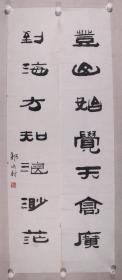 登山始覺天高廣
到海方知浪渺茫